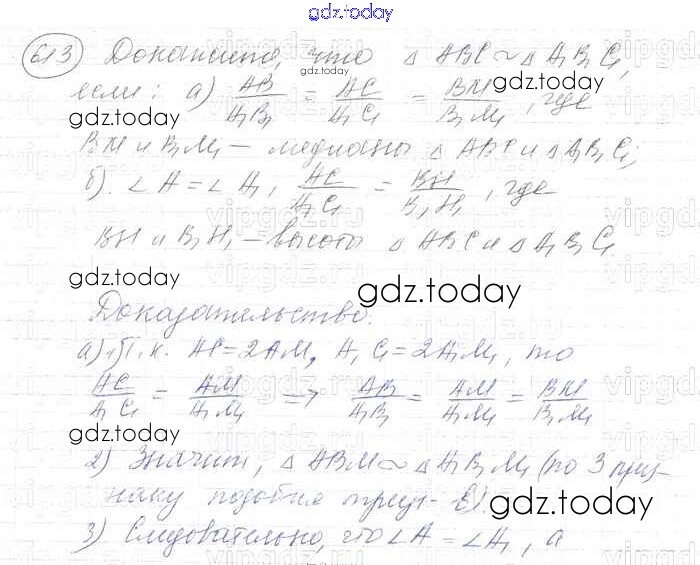 gdz.today
613 Докажите, что △ ABC ~ △ A₁B₁C₁,
gdz.today
если: а) AB/A₁B₁ = AC/A₁C₁ = BM/B₁M₁, где
gdz.today
gdz.today
BM и B₁M₁ – медианы △ ABC и △ A₁B₁C₁;
б). ∠A = ∠A₁, AC/A₁C₁ = BH/B₁H₁, где
vipgdz.ru
BH и B₁H₁ – высоты △ ABC и △ A₁B₁C₁.
gdz.today
gdz.today
Доказательство.
а) 1) Т. к. AC = 2AM, A₁C₁ = 2A₁M₁, то
AC/A₁C₁ = AM/A₁M₁ ⟹ AB/A₁B₁ = AM/A₁M₁ = BM/B₁M₁
gdz.today
gdz.today
2) Значит, △ ABM ~ △ A₁B₁M₁ (по 3 приз-
наку подобия треуг-в).
gdz.today
3) Следовательно, что ∠A = ∠A₁, а
gdz.today